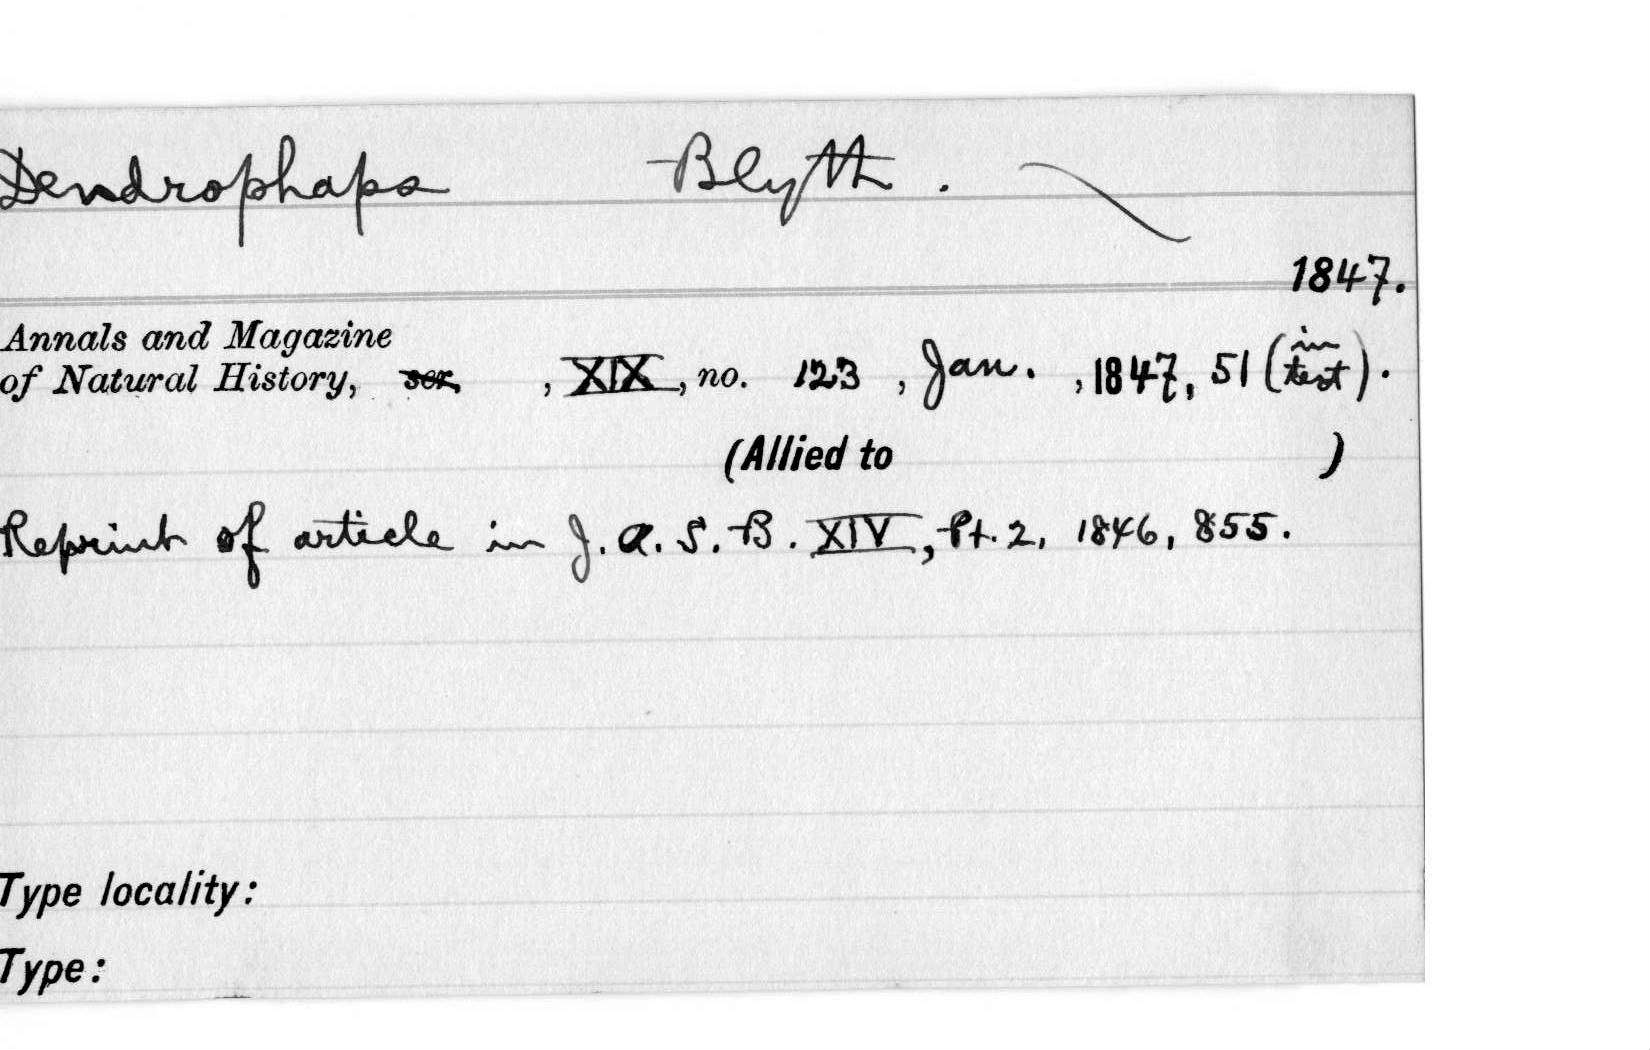 Dendrophaps Blyth.
1847.
Annals and Magazine
of Natural History, ser. , XIX, no. 123 , Jan. , 1847, 51 (in text).
(Allied to )
Reprint of article in J. A. S. B. XIV, Pt. 2, 1846, 855.
Type locality:
Type: